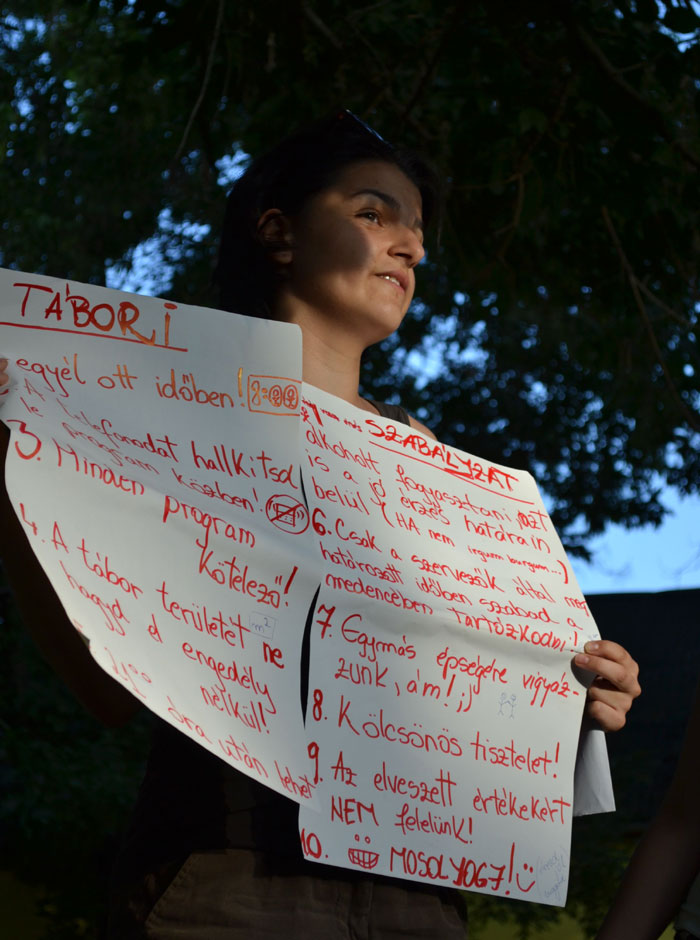 TÁBORI
egyél ott időben!
A telefonodat halkítsd
le program közben!
3. Minden program
kötelező!
4. A tábor területét ne
m²
hagyd el engedély
nélkül!
óra után lehet
SZABÁLYZAT
alkoholt fogyasztani, azt
is a jó érzés határain
belül (HA nem
6. Csak a szervezők által meg
határozott időben szabad a
medencében tartózkodni!
7. Egymás épségére vigyáz-
zunk, ám! ;)
8. Kölcsönös tisztelet!
9. Az elveszett értékekért
NEM felelünk!
10. MOSOLYOGJ!